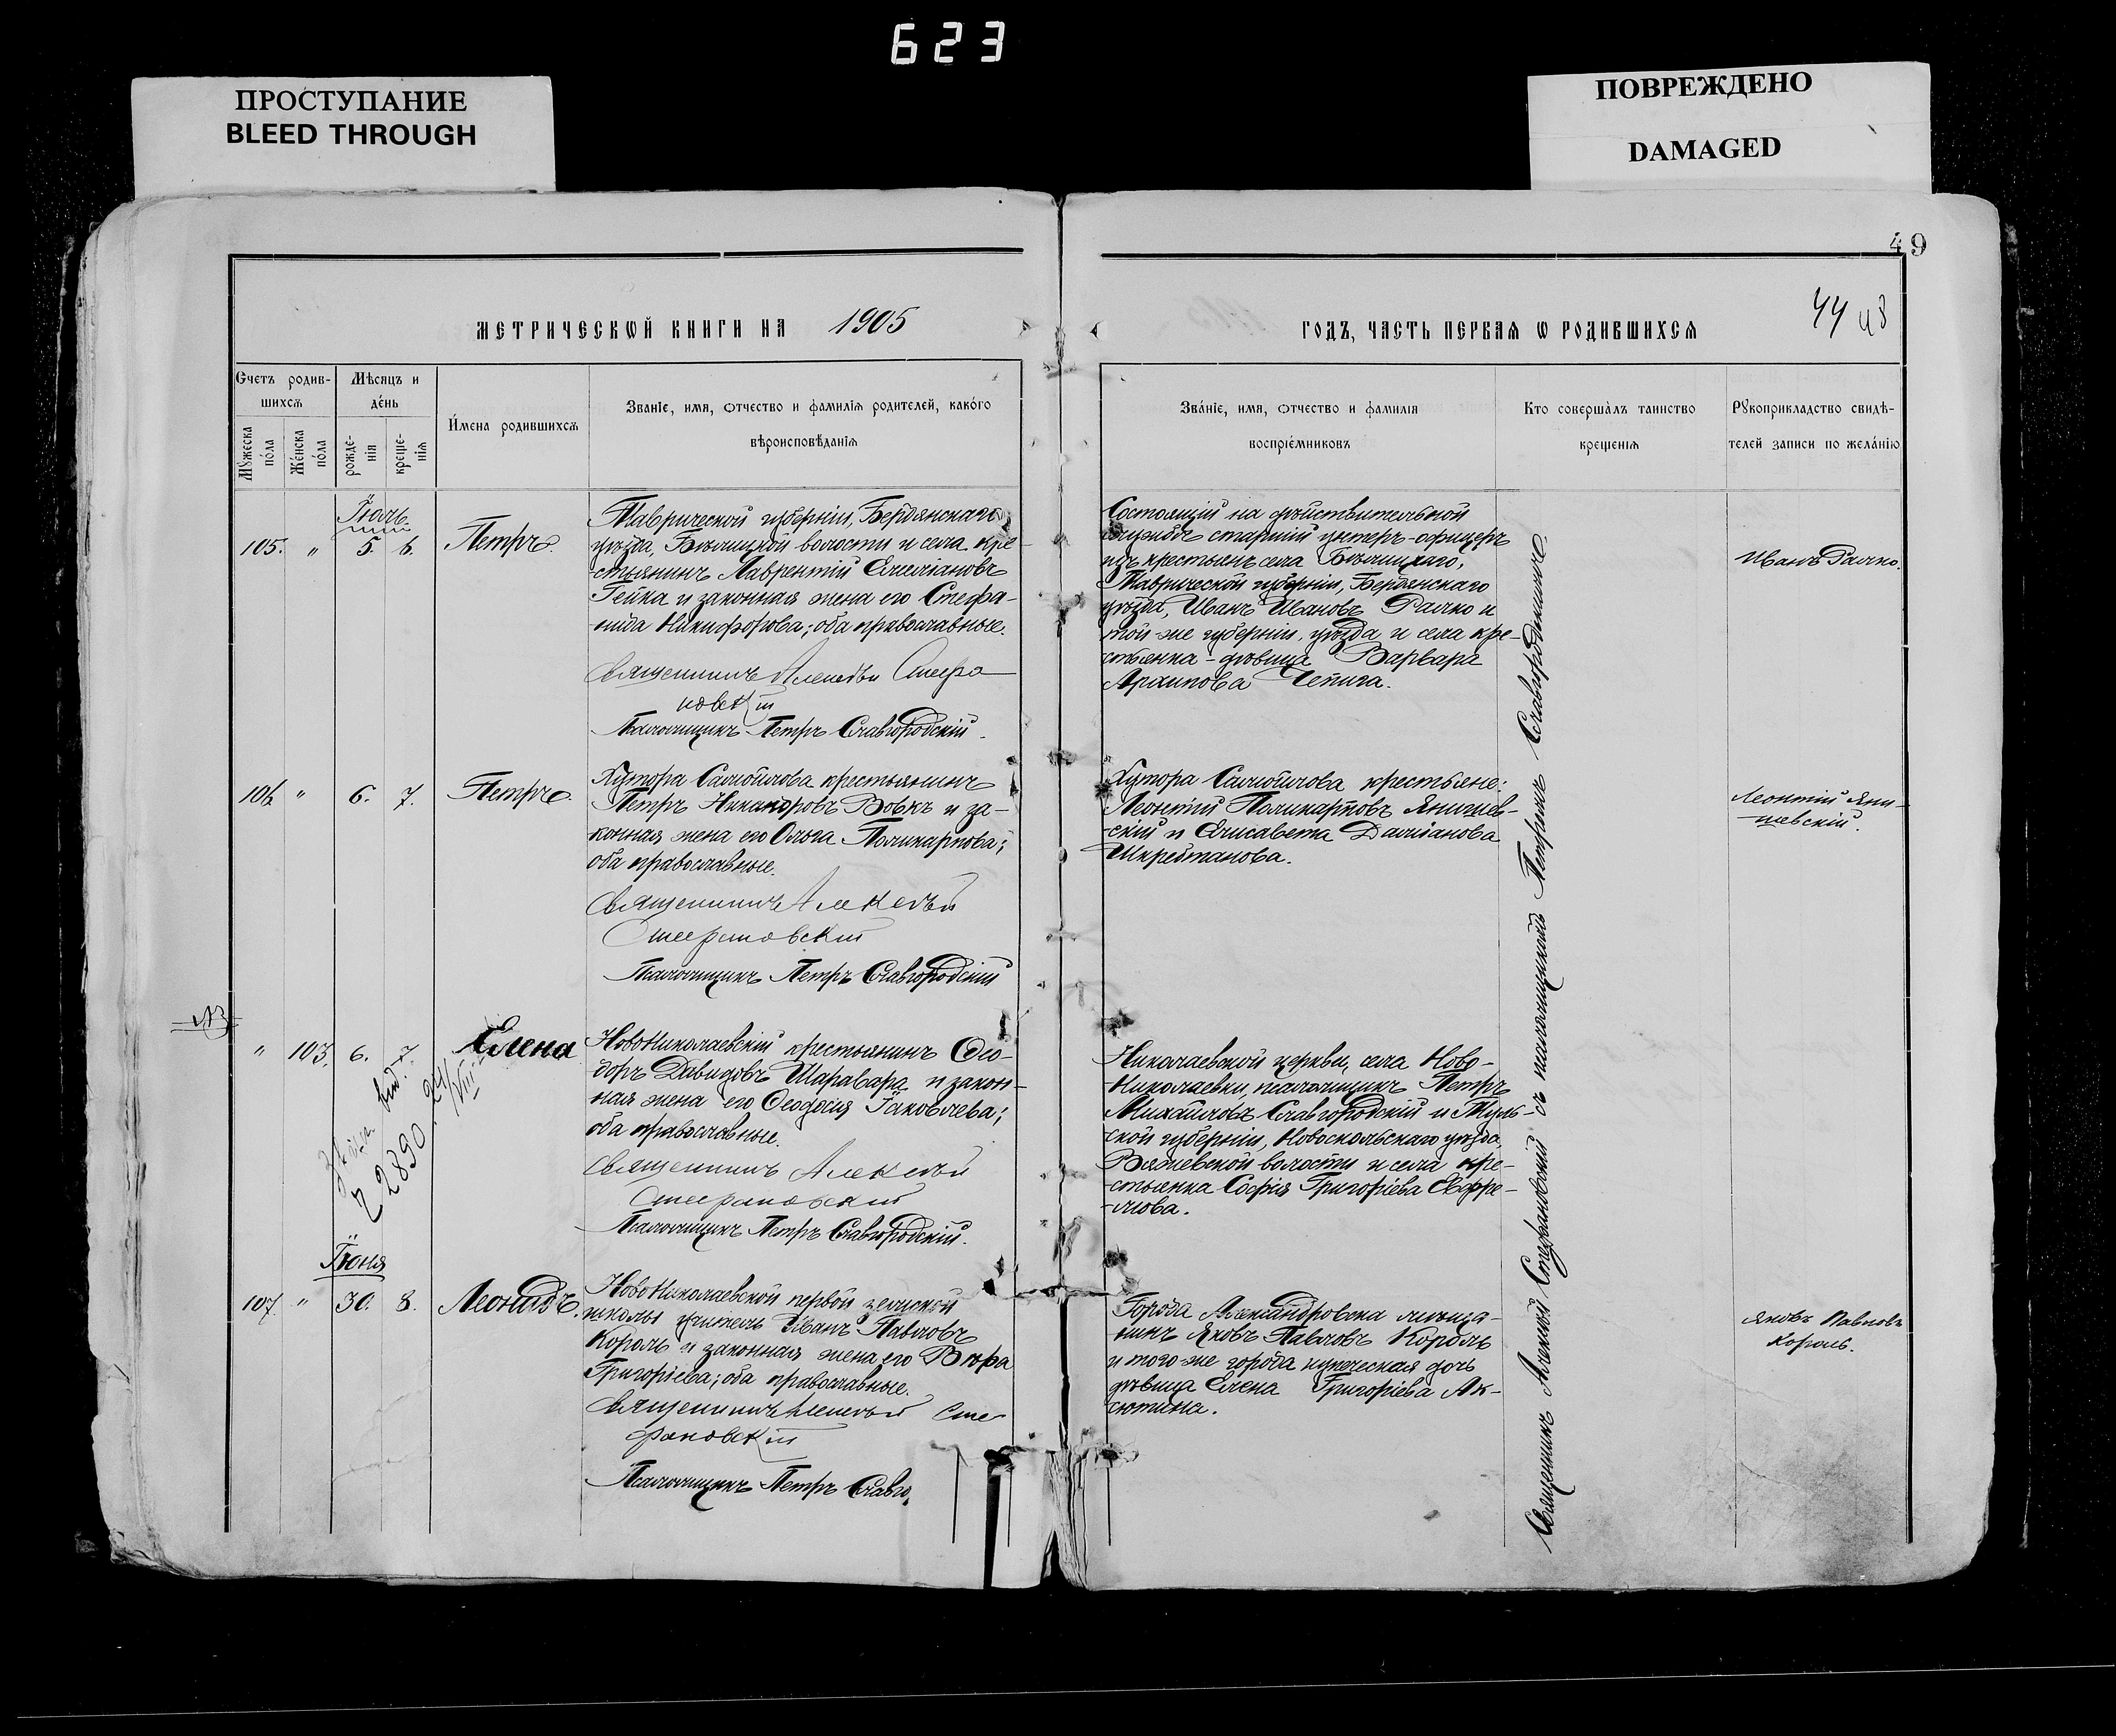 623
ПРОСТУПАНИЕ
BLEED THROUGH
ПОВРЕЖДЕНО
DAMAGED
49
44
48
МЕТРИЧЕСКѠЙ КНИГИ НА 1905
ГОДЪ, ЧАСТЬ ПЕРВАѦ Ѡ РОДИВШИХСѦ
Счетъ родив-
шихсѧ
Мѣсяцъ и
де́нь
Мꙋ́жеска
по́ла
Же́нска
по́ла
рожде-
нія
креще-
нія
И́мена родившихсѧ
Званіе, имя, ѻтчество и фамилія родителей, како́го
вѣроисповѣ́данія
Зва́ніе, имя, ѻтчество и фамилія
воспріе́мниковъ
Кто соверша̀лъ таинство
крещенія
Рꙋкоприкладство свидѣ-
телей записи по жела́нію
Іюль
105. " 5. 6. Петръ.
Таврической губерніи, Бердянскаго
уѣзда, Бѣлицкой волости и села кре-
-стьянинъ Лаврентій Емеліановъ
Гейка и законная жена его Стефа-
-нида Никифорова; оба православные.
Священникъ Алексѣй Стефа
новскій
Псаломщикъ Петръ Славгородскій.
Состоящій на дѣйствительной
службѣ старшій унтеръ-офицеръ
изъ крестьянъ села Бѣлицкаго,
Таврической губерніи, Бердянскаго
уѣзда, Иванъ Ивановъ Ралко и
той-же губерніи, уѣзда и села кре-
стьянка-дѣвица Варвара
Архипова Чепига.
Иванъ Ралко.
106 " 6. 7. Петръ.
Хутора Самойлова крестьянинъ
Петръ Никаноровъ Вовкъ и за-
конная жена его Ольга Поликарпова;
оба православные.
Священникъ Алексѣй
Стефановскій
Псаломщикъ Петръ Славгородскій
Хутора Самойлова крестьяне:
Леонтій Поликарповъ Янишев-
-скій и Елисавета Даміанова
Леонтій Яни-
шевскій.
" 103. 6. 7. Елена
Новониколаевскій крестьянинъ Ѳео-
доръ Давидовъ Шаравара и закон-
ная жена его Ѳеодосія Іаковлева;
оба православные.
Священникъ Алексѣй
Стефановскій
Псаломщикъ Петръ Славгородскій.
Николаевской церкви, села Ново-
-Николаевки, псаломщикъ Петръ
Михайловъ Славгородскій и Туль-
ской губерніи, Новосильскаго уѣзда,
Вяжевской волости и села кре-
-стьянка Софія Григоріева Евфре-
-мова.
вид.
2890
24/VIII
Іюня
107. " 30. 8. Леонидъ.
Новониколаевской первой земской
школы учитель Іванъ Павловъ
Король и законная жена его Вѣра
Григоріева; оба православные.
Священникъ Алексѣй Сте
фановскій
Псаломщикъ Петръ Славго
Города Александровска мѣща-
нинъ Яковъ Павловъ Король
и того-же города купеческая дочь
дѣвица Елена Григоріева Ак-
сютина.
Яковъ Павловъ
Король.
Священникъ Алексѣй Стефановскій съ псаломщикомъ Петромъ Славгородскимъ.